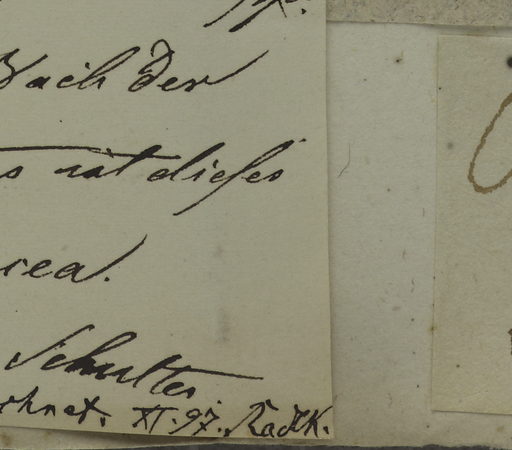 Nach der
ist dieses
icea.
Schultes
chnet. XI. 97. Radlk.